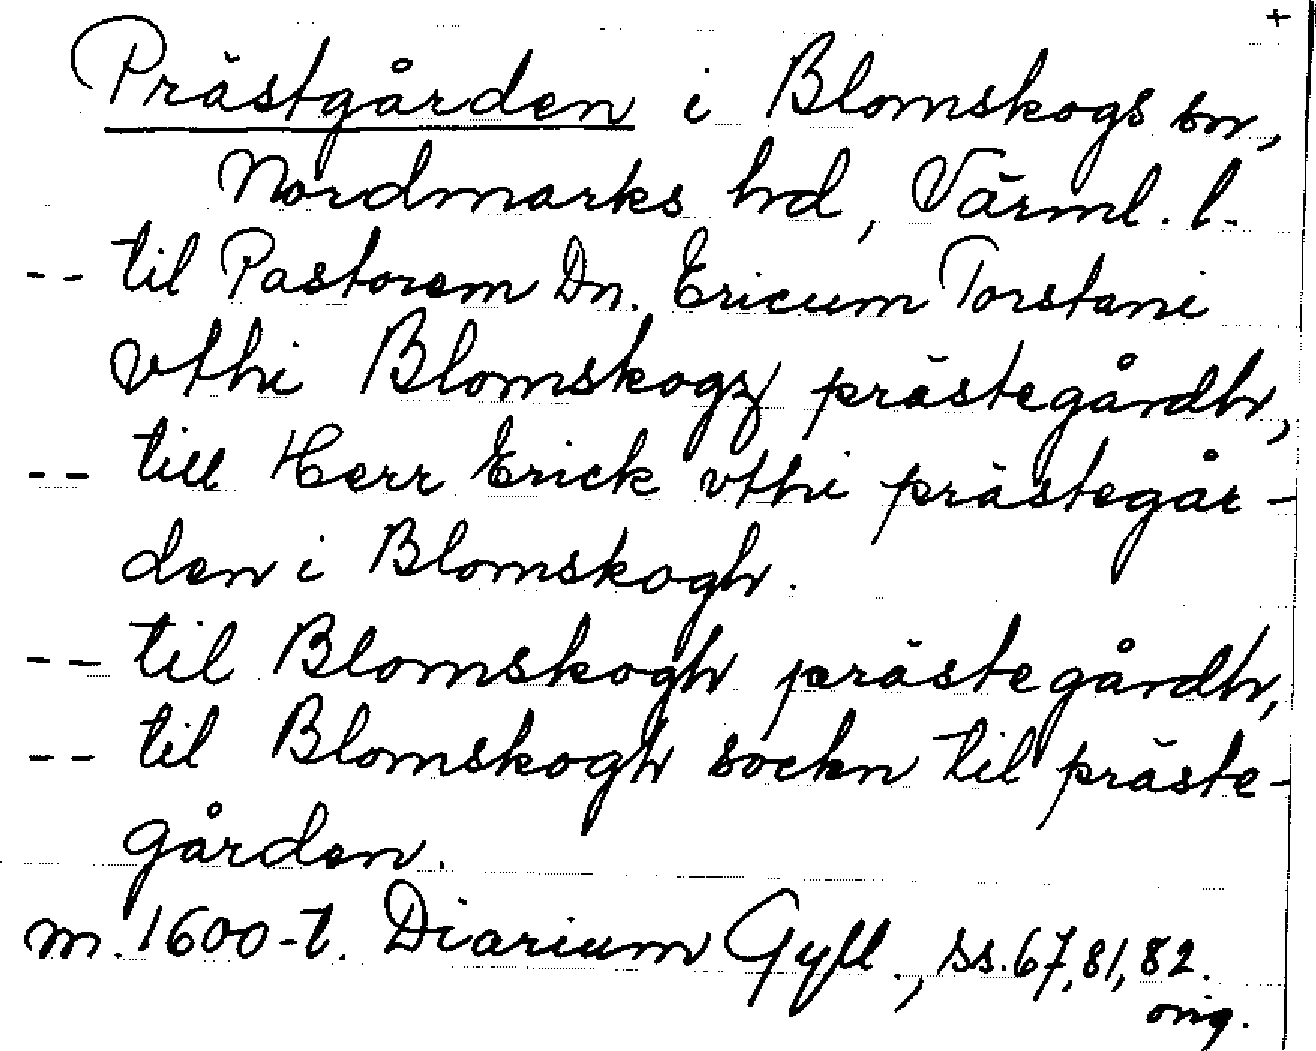 +
Prästgården i Blomskogs sn,
Nordmarks hd, Värml. l.
-- til Pastorem Dn. Ericum Torstani
vthi Blomskogz prästegårdh,
-- till Herr Erick vthi prästegår-
den i Blomskogh.
-- til Blomskogh prästegårdh,
-- til Blomskogh sockn til präste-
gården.
m. 1600-t. Diarium Gyll., ss. 67, 81, 82.
orig.